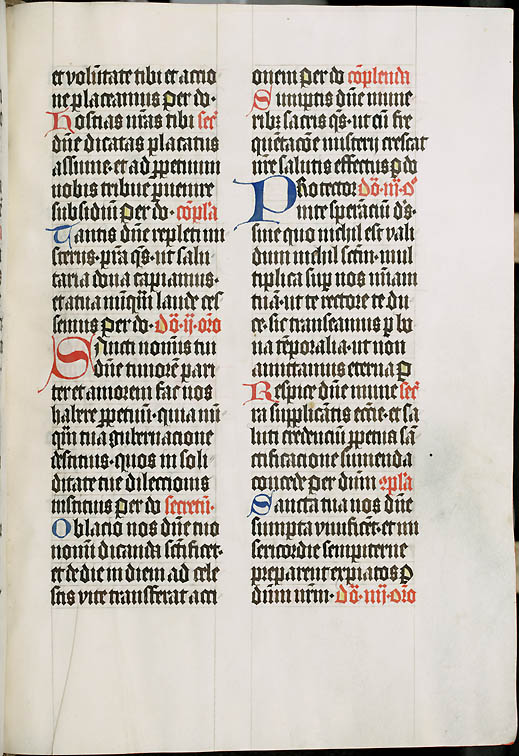 et volūtate tibi et actio
ne placeamus per do·
Hostias nr̄as tibi sec̄
dn̄e dicatas placatus
assume· et ad ꝑpetuum
nobis tribue ꝓuenire
subsidiū per do· cōpl̄a
Tantis dn̄e repleti mi
steriis· p̄ta qs̄· ut salu
taria dona capiamus·
et a tua nunqū laude ces
semus per do· Dō·ij·oro
Sancti nominis tui
dn̄e timorē pari
ter et amorem fac nos
habere ꝑpetuū· quia nū
qū tua gubernatione
destituis· quos in soli
ditate tue dilectionis
instituis per do secretū·
Oblatio nos dn̄e tuo
nomī dicanda sc̄tificet·
et de die in diem ad cele
stis vite transferat acti
onem per do cōplenda
Sumptis dn̄e mune
ribȝ sacris qs̄· ut cū fre
quētacōe misterij crescat
nr̄e salutis effectus ꝑ do
PRotector dō·iij·o᷑
in te sperātiū ds̄·
sine quo nichil est vali
dum nichil sc̄m· mul
tiplica suꝑ nos mīam
tuā· ut te rectore te du
ce· sic transeamus ꝑ bo
na tēporalia· ut non
amittamus eterna ꝑ
Respice dn̄e mune sec̄
ra supplicātis ecc̄ie· et sa
luti credenciū ꝑpetua sā
ctificatione sumenda
concede per dnm cpl̄a
Sancta tua nos dn̄e
sumpta viuificēt· et mi
sericordie sempiterne
preparent expiatos ꝑ
dnm nr̄m· dō·iiij·oro